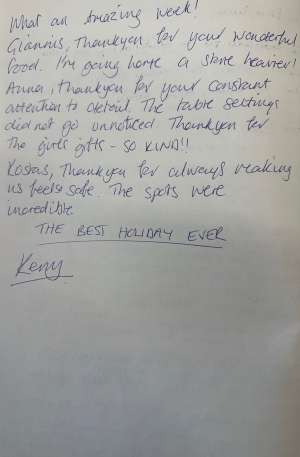 What an amazing week!
Giannis, Thankyou for your wonderful
food. I'm going home a stone heavier!
Anna, thankyou for your constant
attention to detail. The table settings
did not go unnoticed. Thankyou for
the girls gifts - SO KIND!!
Kostas, Thankyou for always making
us feel so safe. The spots were
incredible
THE BEST HOLIDAY EVER